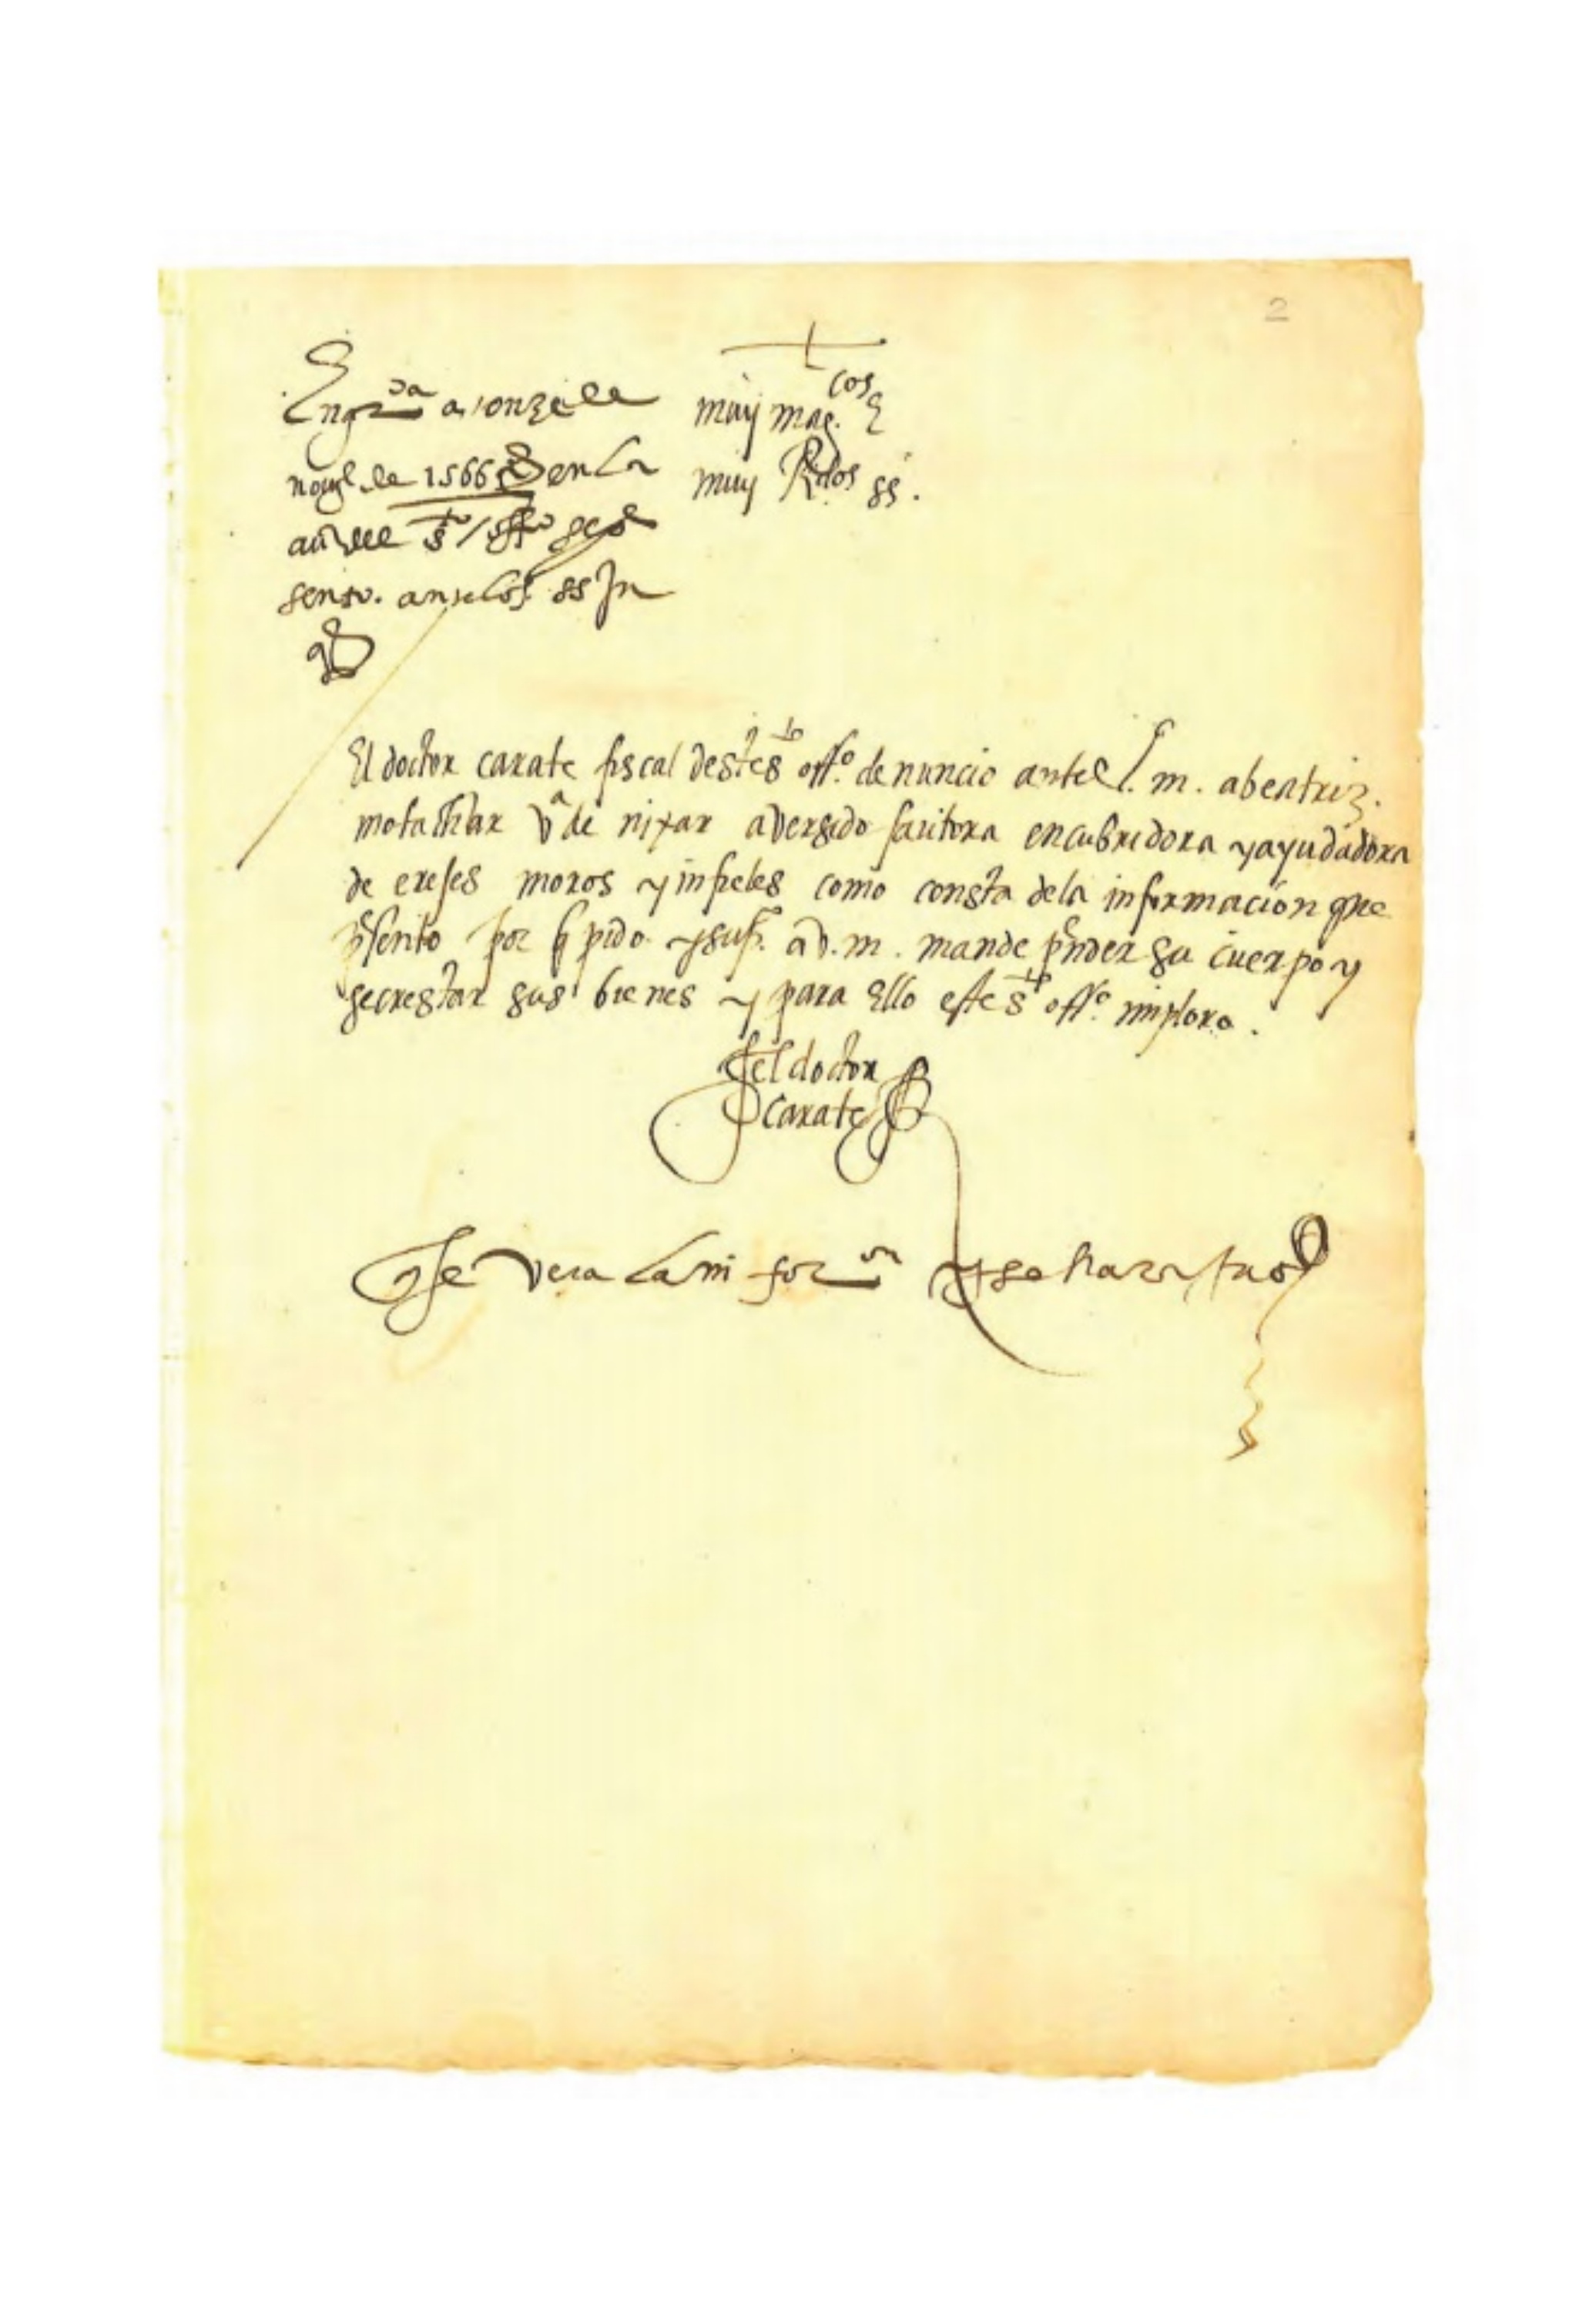 2
En grda a onze de
nove de 1566 as en la
auda del sto offo se pre
sento. ante los ss In
qs
muy magcos E
muy Rdos ss.
El doctor carate fiscal deste sto offo. denuncio ante V. m. a beatriz.
motachar va de nixar aver sido fautora encubridora y ayudadora
de erejes moros y infieles como consta de la informacion que
psento por q pido y supco. a v. m. mande pnder su cuerpo y
secrestar sus bienes y para Ello este sto offo. imploro.
el doctor
carate
que se vera la inforon y se hara jusa